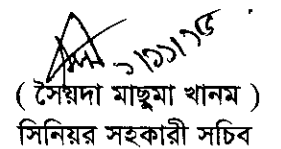 ( সৈয়দা মাছুমা খানম )
সিনিয়র সহকারী সচিব